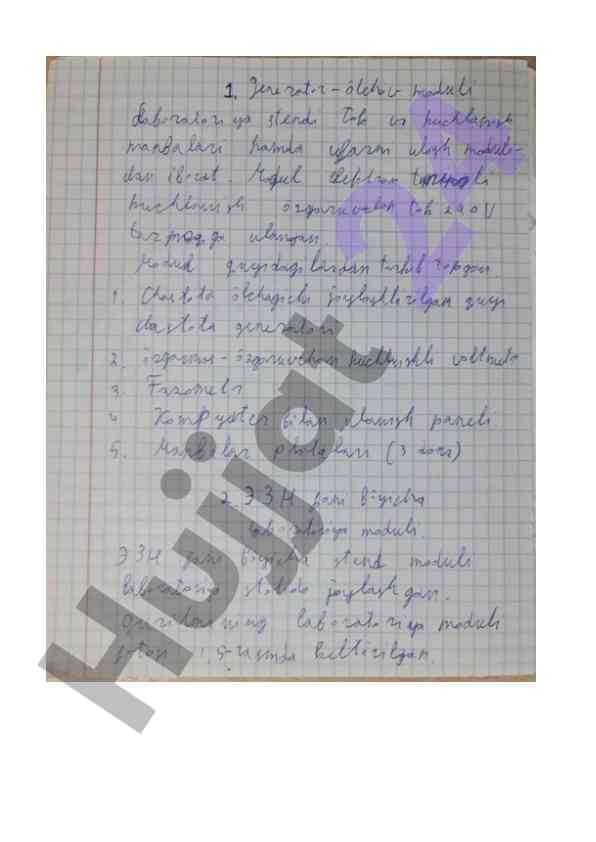 1. Generator-ölchov moduli
Laboratoriya stendi tok va kuchlanish
manbalari hamda ularni ulash moduli-
dan iborat. Modul elektron
kuchlanish özgaruvchan tok 220V
tarmoqqa ulangan.
Modul quyidagilardan tarkib topgan
1. Chastota ölchagichi joylashtirilgan quyi
chastota generatori
2. özgarmas-özgaruvchan kuchlanishli voltmetr
3. Fazometr
4. Kompyuter bilan ulanish paneli
5. Manbalar platalari (3 dona)
2. ЭЗН fani böyicha
laboratoriya moduli.
ЭЗН fani böyicha stend moduli
laboratoriya stolida joylashgan.
Qurilmaning laboratoriya moduli
fotosi 1.5-rasmda keltirilgan.
Hujjat
24